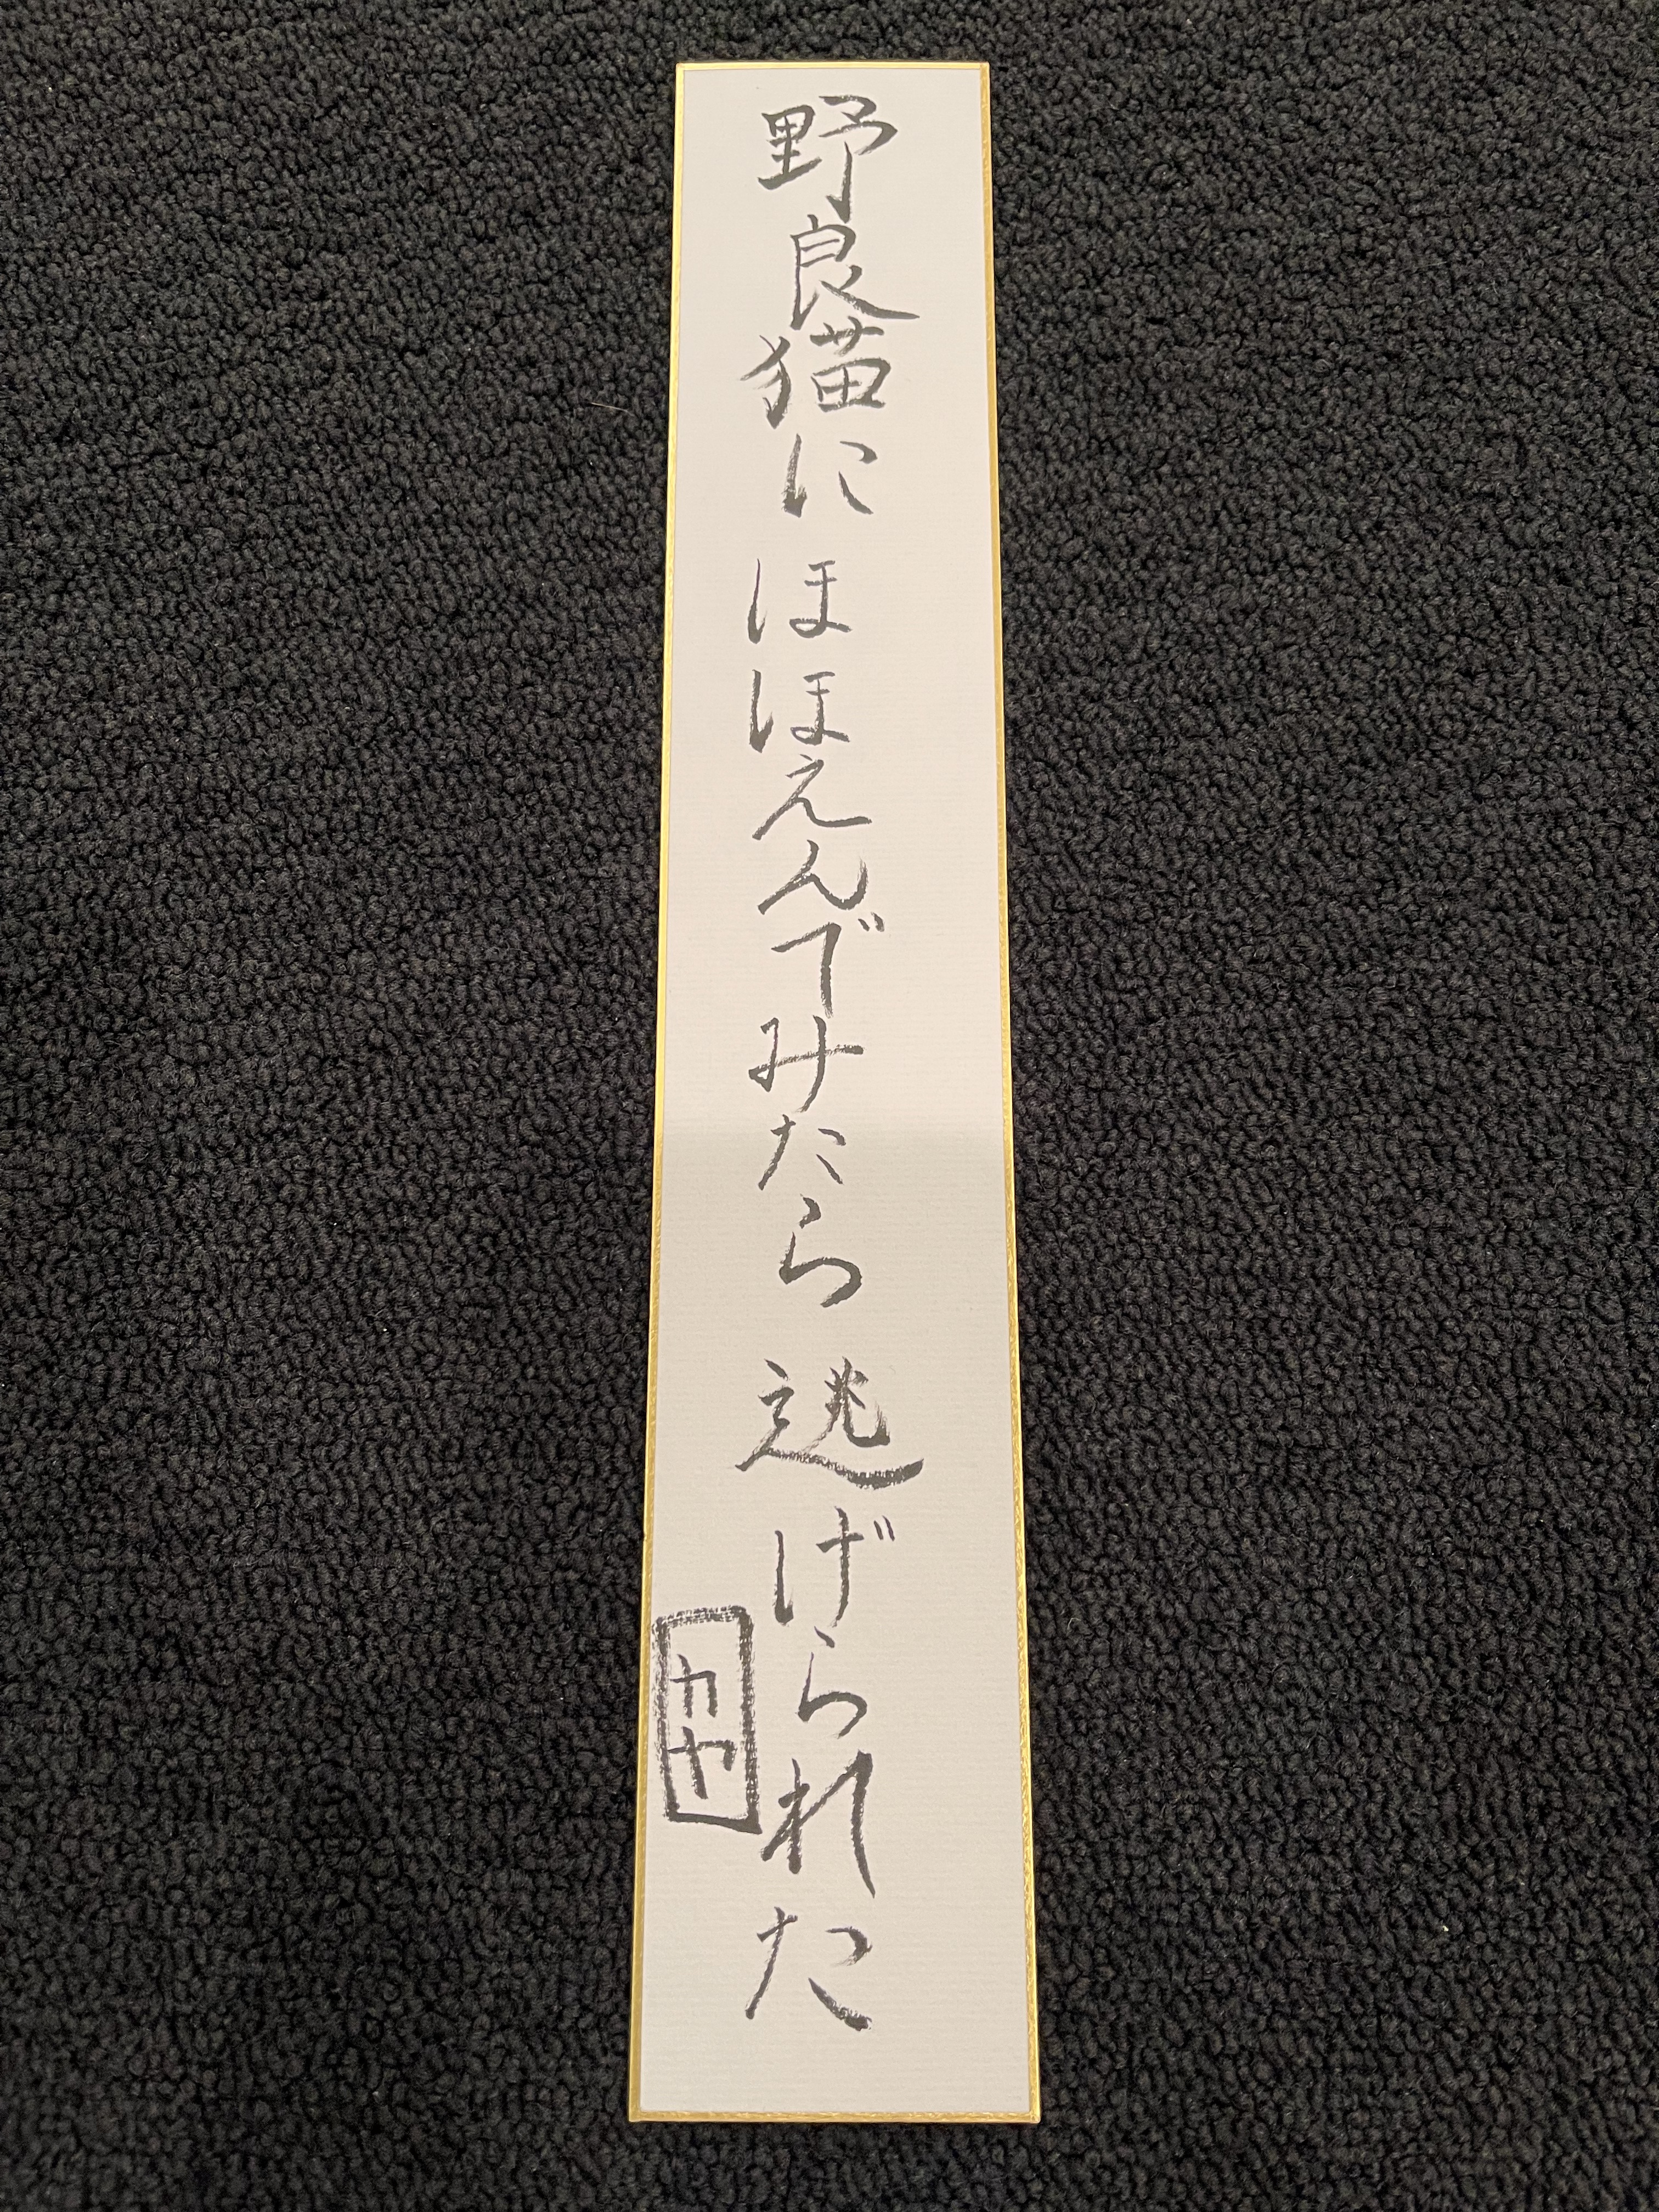 野良猫に ほほえんでみたら 逃げられた
カヤ